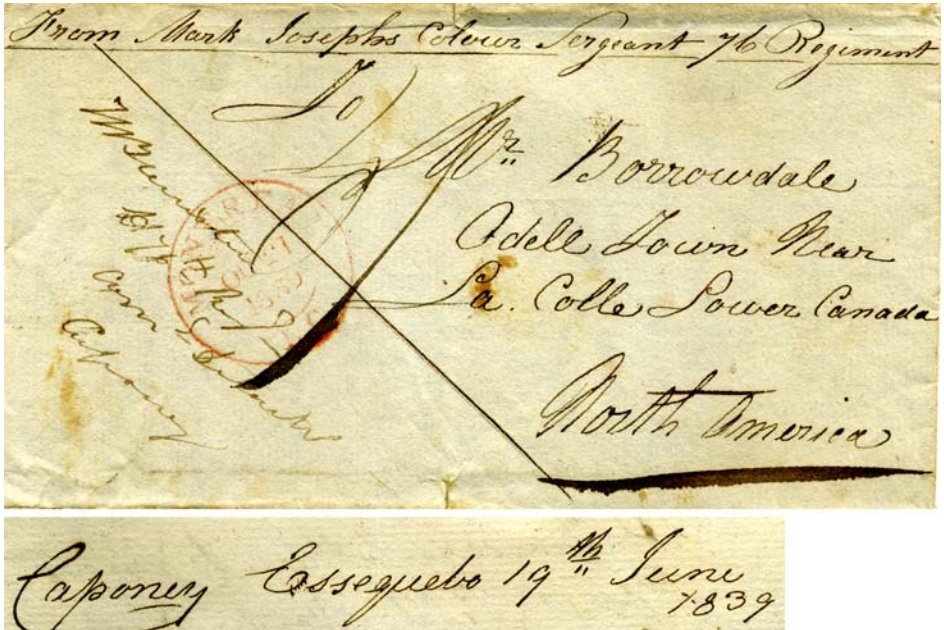 From Mark Josephs Colour Sergeant 76 Regiment
To
Mr. Borrowdale
Odell Town Near
La. Colle Lower Canada
North America
76
Com
Caponey
Caponey Essequebo 19th June
1839